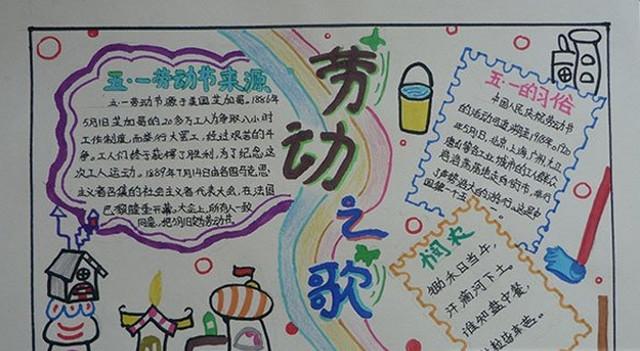 五·一劳动节来源
五·一劳动节源于美国芝加哥。1886年
5月1日芝加哥的20多万工人为争取八小时
工作制度而举行大罢工,经过艰苦的斗
争。工人们终于获得了胜利,为了纪念这
次工人运动。1889年7月14日由各国马克思
主义者召集的社会主义者代表大会,在法国
巴黎隆重开幕。大会上,所有人一致
同意。把5月1日定为劳动节
劳动之歌
五·一的习俗
中国人民庆祝劳动节
的活动可追溯至1918年。1920
年5月1日,北京、上海、广州、九江
唐山等各工业城市的工人群众
浩浩荡荡地走向街市、举行
了声势浩大的
悯农
锄禾日当午,
汗滴河下土。
谁知盘中餐,
粒粒皆辛苦。